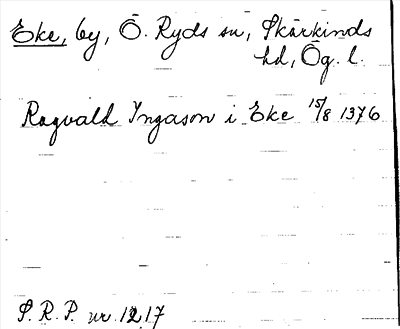 Eke, by, Ö. Ryds sn, Skärkinds
hd, Ög. l.
Ragvald Ingason i Eke 15/8 1376
S. R. P. nr 1217